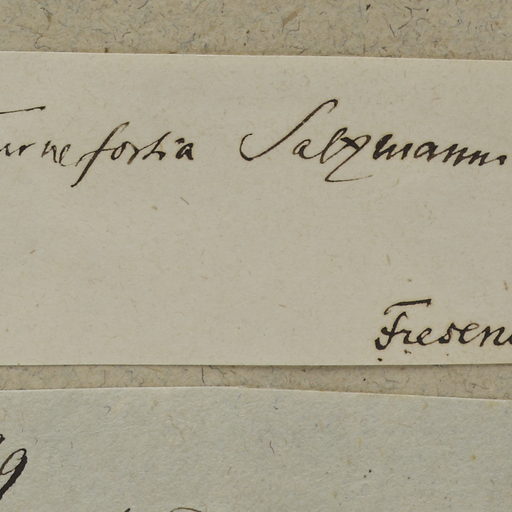 Turnefortia Salzmanni
Fresen
9